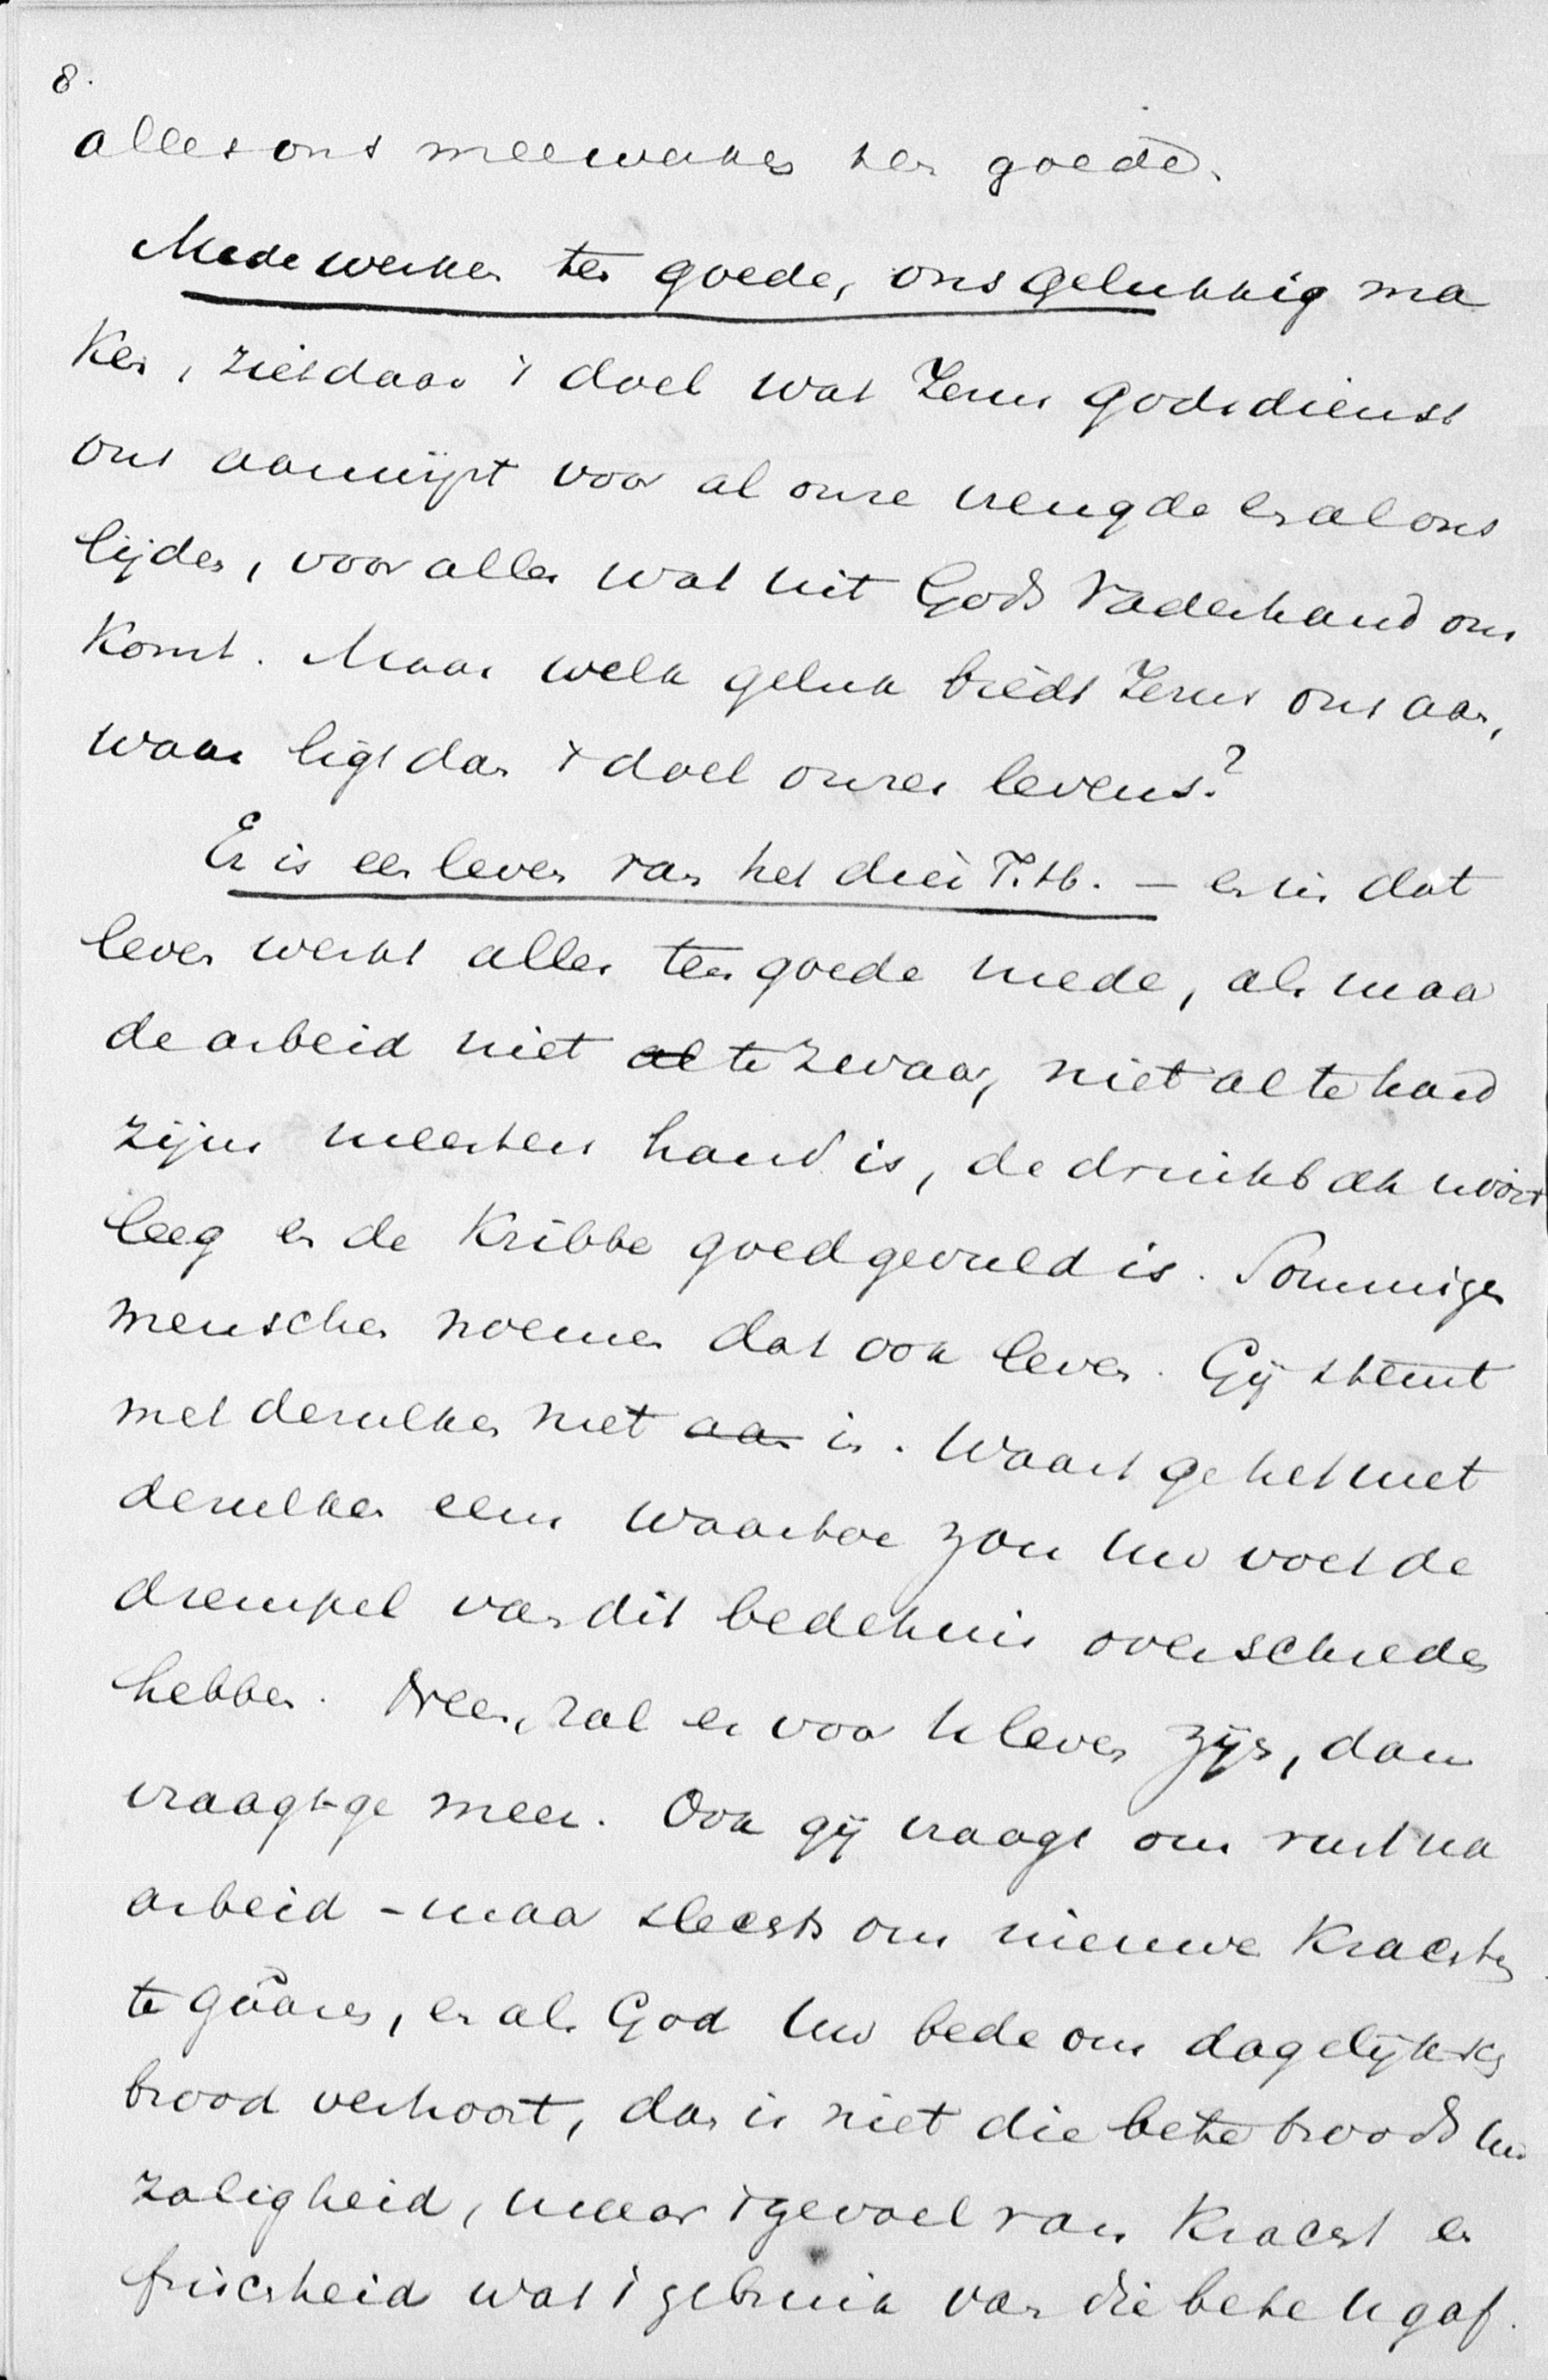 8.
alles ons meewerken ten goede.
Mede werken ten goede, ons gelukkig ma
ken, ziet daar 't doel wat Jezus godsdienst
ons aanwijst voor al onze vreugde en al ons
lijden, voor alles wat uit Gods Vaderhand ons
komt. Maar welk geluk biedt Jezus ons aan,
waar ligt dan 't doel onzes levens?
Er is een leven van het dier T.H. – en in dat
leven werkt alles ten goede mede, als maar
de arbeid niet al te zwaar, niet al te hard
zijns meesters hand is, de drinkbak nooit
leeg en de kribbe goed gevuld is. Sommige
menschen noemen dat ook leven. Gij stemt
met dezulken niet aan in. Waart ge het met
dezulken eens waartoe zou uw voet de
drempel van dit bedehuis overschreden
hebben. Neen, zal er voor U leven zijn, dan
vraagt-ge meer. Ook gij vraagt om rust na
arbeid – maar slechts om nieuwe krachten
te gâaren, en als God Uw bede om dagelijksch
brood verhoort, dan is niet die bete broods Uw
zaligheid, maar 't gevoel van kracht en
frischheid wat 't gebruik van die bete U gaf.